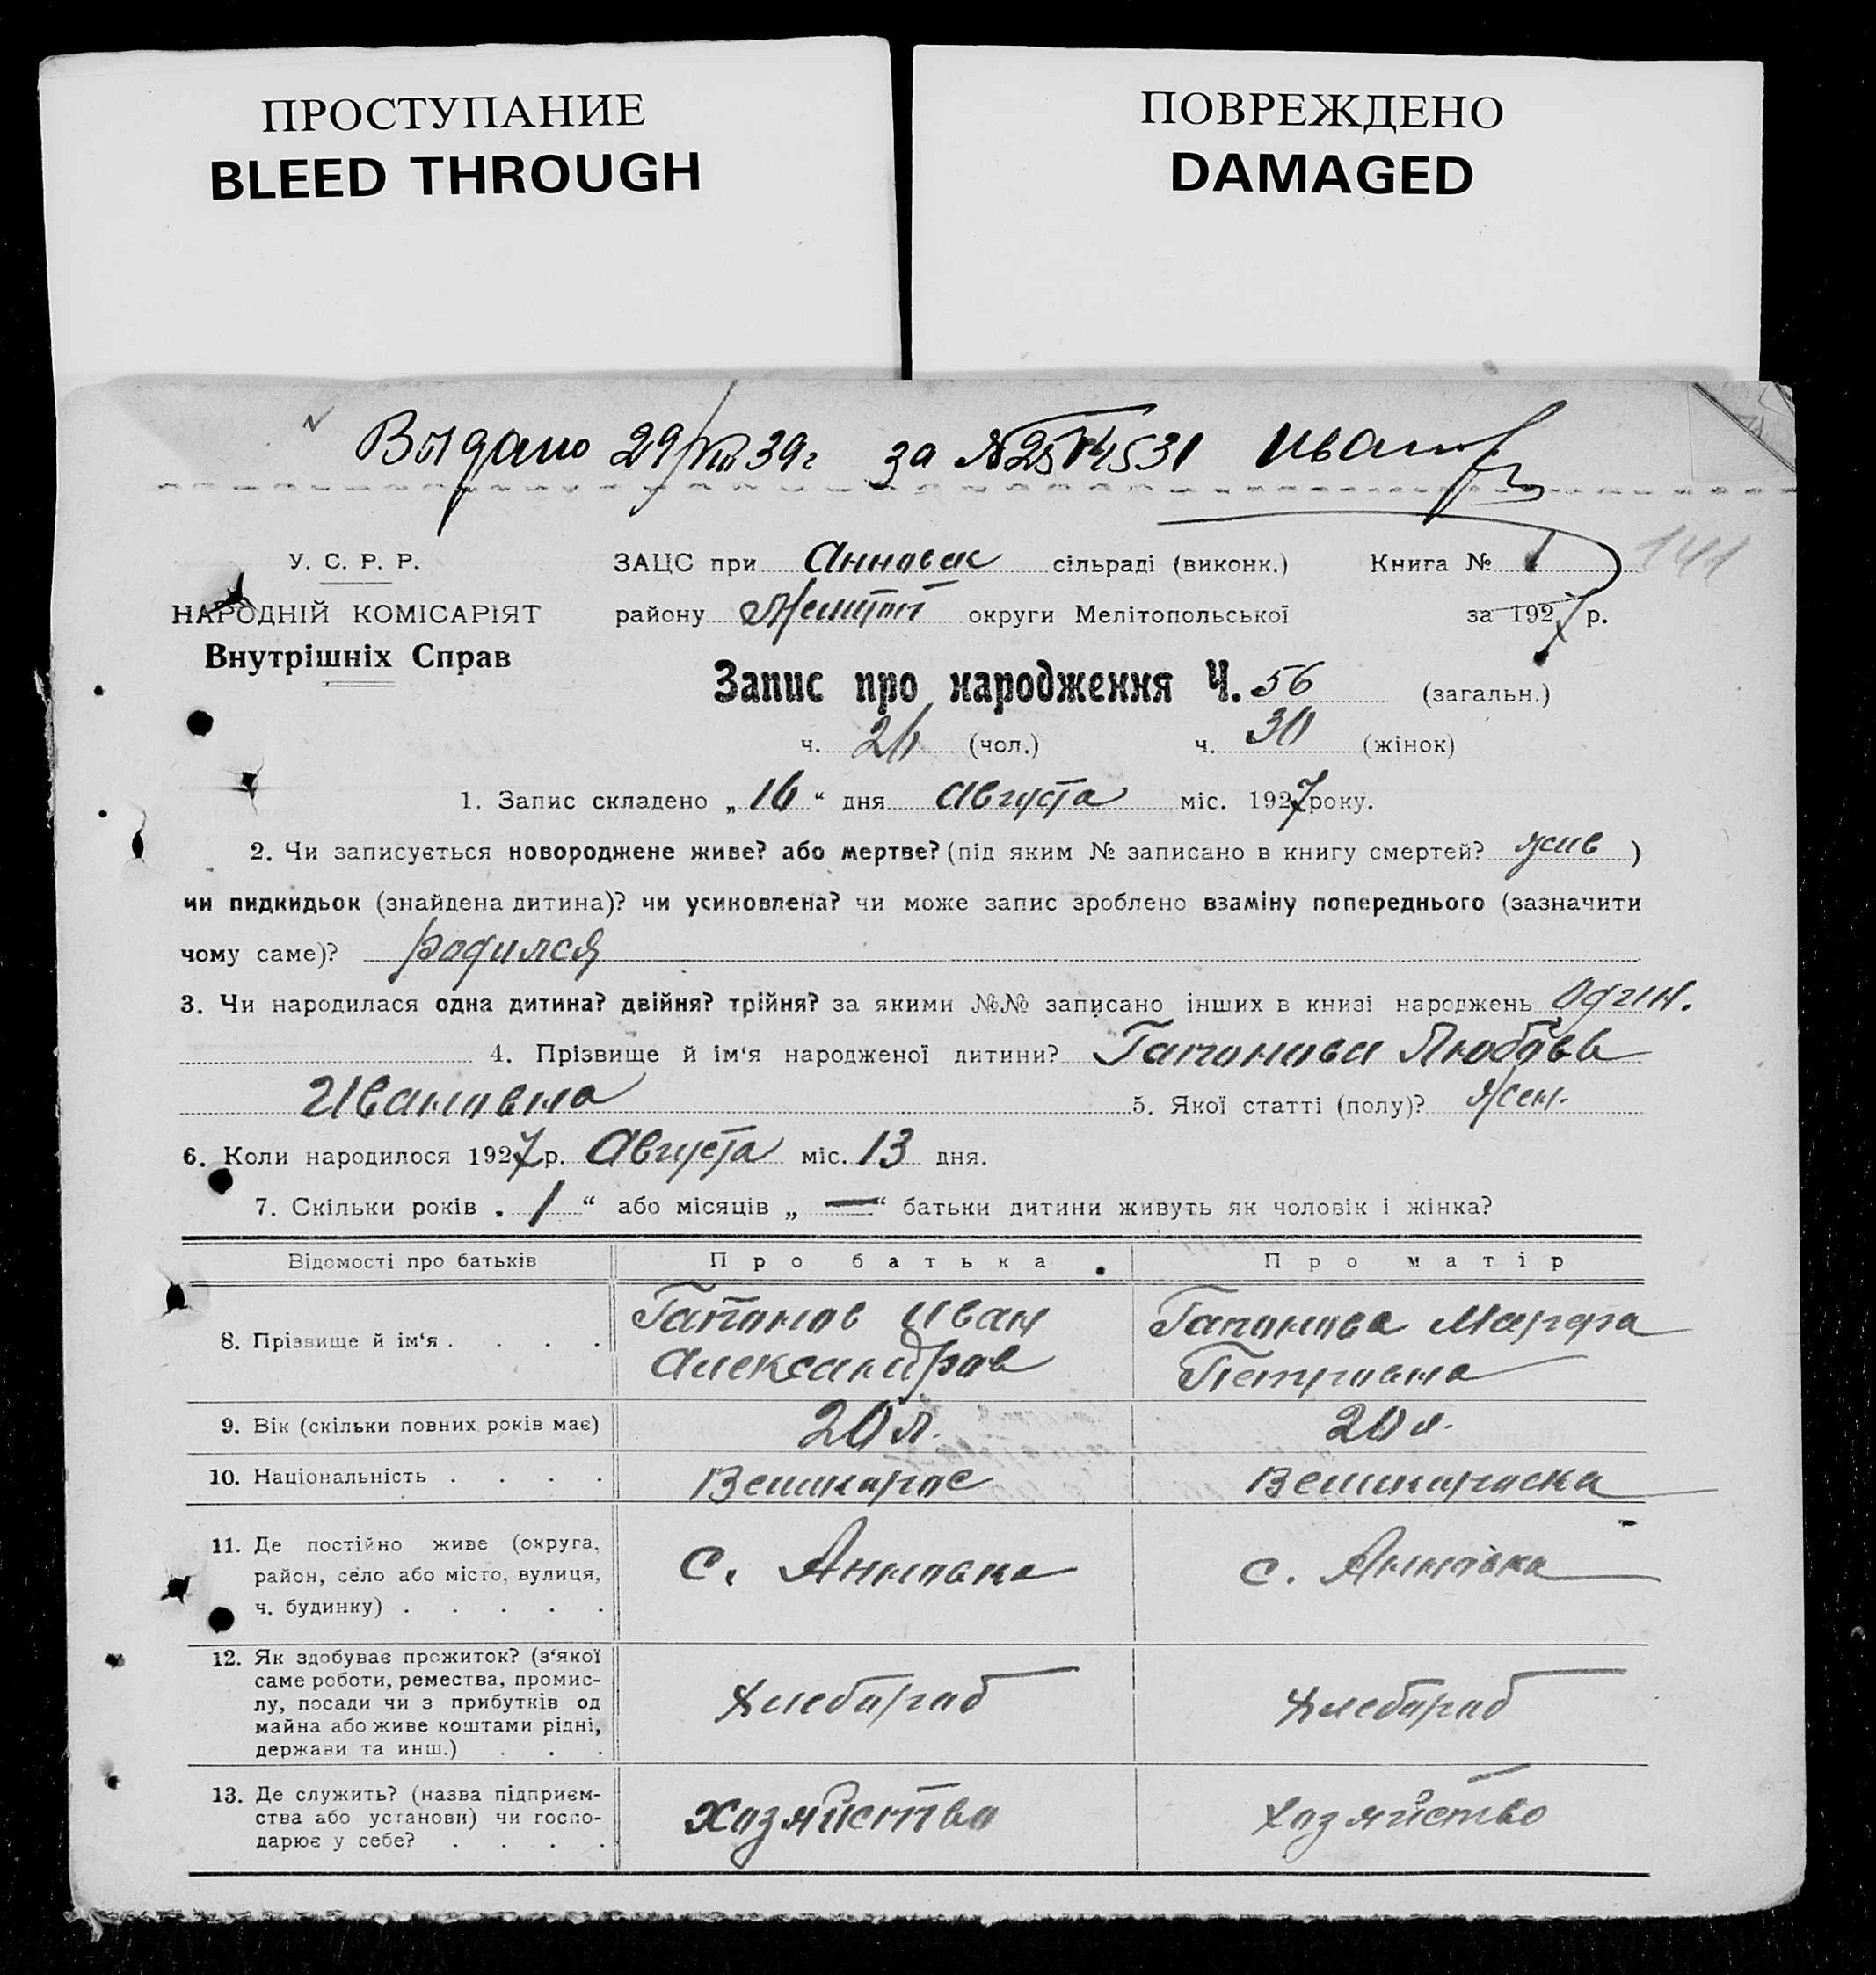 ПРОСТУПАНИЕ
BLEED THROUGH
ПОВРЕЖДЕНО
DAMAGED
Выдано 29/VIII 39г за № Иванов
У. С. Р. Р.
НАРОДНІЙ КОМІСАРІЯТ
Внутрішніх Справ
ЗАЦС при Анновск сільраді (виконк.) Книга № 1 141
району округи Мелітопольської за 1927 р.
Запис про народження Ч. 56 (загальн.)
ч. 26 (чол.) ч. 30 (жінок)
1. Запис складено „16“ дня Августа міс. 1927 року.
2. Чи записується новороджене живе? або мертве? (під яким № записано в книгу смертей? жив )
чи пидкидьок (знайдена дитина)? чи усиновлена? чи може запис зроблено взаміну попереднього (зазначити
чому саме)? родился
3. Чи народилася одна дитина? двійня? трійня? за якими №№ записано інших в книзі народжень один.
4. Прізвище й ім‘я народженої дитини? Гапонова Любовь
Ивановна 5. Якої статті (полу)? Жен.
6. Коли народилося 1927 р. Августа міс. 13 дня.
7. Скільки років „1“ або місяців „—“ батьки дитини живуть як чоловік і жінка?
Відомості про батьків Про батька Про матір
8. Прізвище й ім‘я . . . . Гапонов Иван Гапонова Марфа
Александров Петровна
9. Вік (скільки повних років має) 20 л. 20 л.
10. Національність . . . . Великорос Великороска
11. Де постійно живе (округа,
район, село або місто, вулиця,
ч. будинку) . . . . . С. Анновка С. Анновка
12. Як здобуває прожиток? (з‘якої
саме роботи, ремества, промис-
лу, посади чи з прибутків од
майна або живе коштами рідні,
держави та инш.) . . . Хлебороб Хлебороб
13. Де служить? (назва підприєм-
ства або установи) чи госпо-
дарює у себе? . . . . Хозяйство Хозяйство